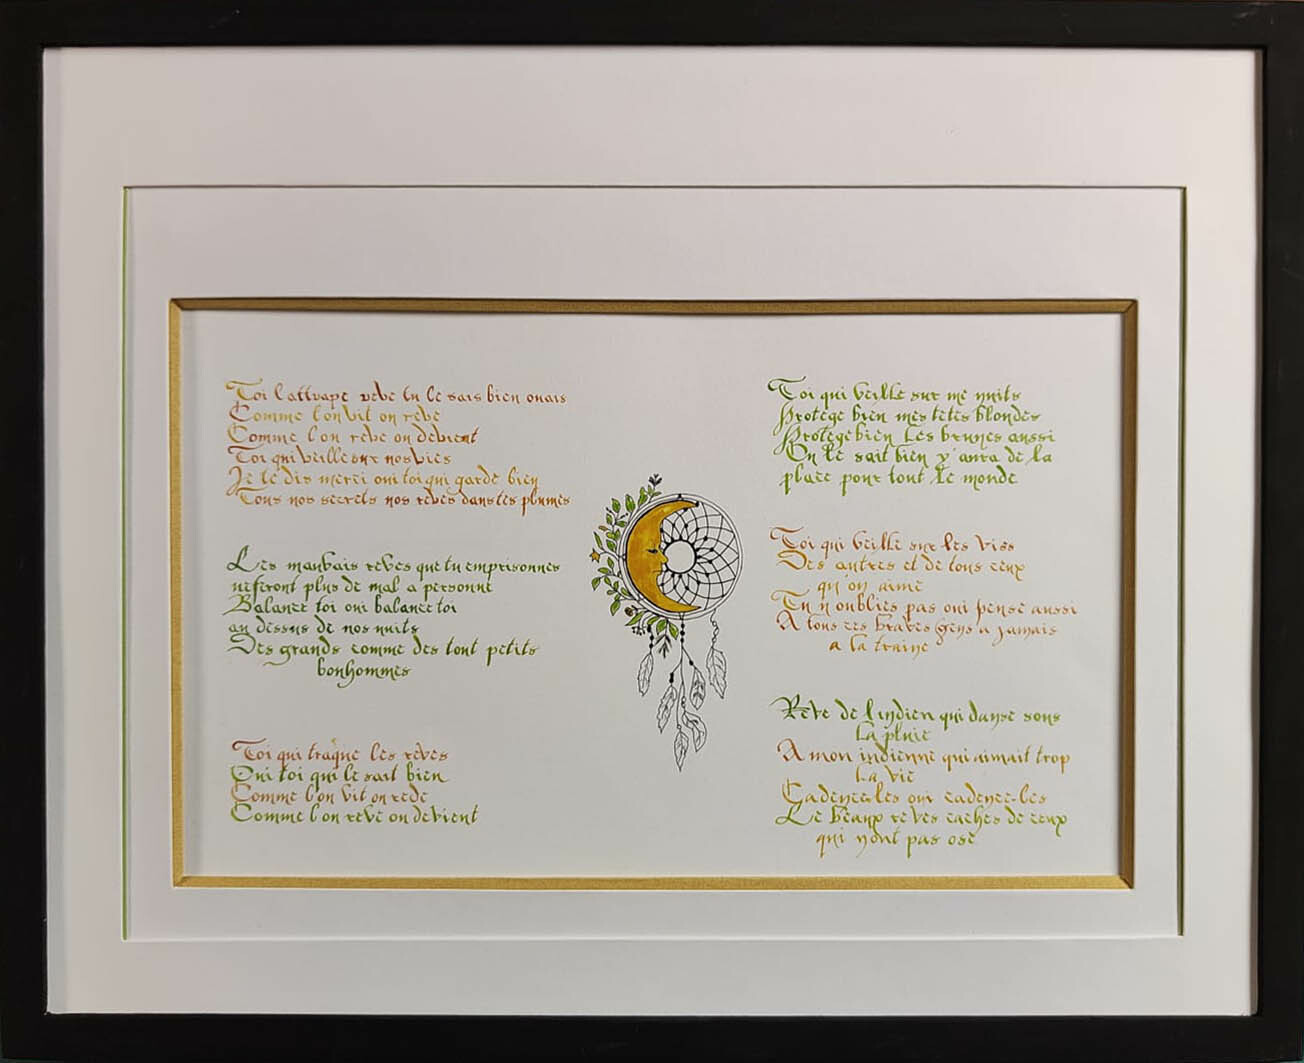 Toi l'attrape reve tu le sais bien ouais
Comme l'on vit on rêve
Comme l'on reve on devient
Toi qui veille sur nos vies
Je te dis merci oui toi qui garde bien
Tous nos secrets nos rêves dans tes plumes
Les mauvais rêves que tu emprisonnes
neferont plus de mal a personne
Balance toi oui balance toi
au dessus de nos nuits
Des grands comme des tout petits
bonhommes
Toi qui traque les rêves
Oui toi qui le sait bien
Comme l'on vit on rede
Comme l'on reve on devient
Toi qui veille sur me nuits
Protège bien mes têtes blondes
Protège bien les brunes aussi
On le sait bien y'aura de la
place pour tout le monde
Toi qui veille sur les vies
Des autres et de tous ceux
qu'on aime
Tu n'oublies pas oui pense aussi
A tous ces braves gens a jamais
a la traine
Rêve de l'indien qui danse sous
la pluie
A mon indienne qui aimait trop
la vie
Cadence-les oui cadence-les
Le beaux reves caches de ceux
qui n'ont pas osé